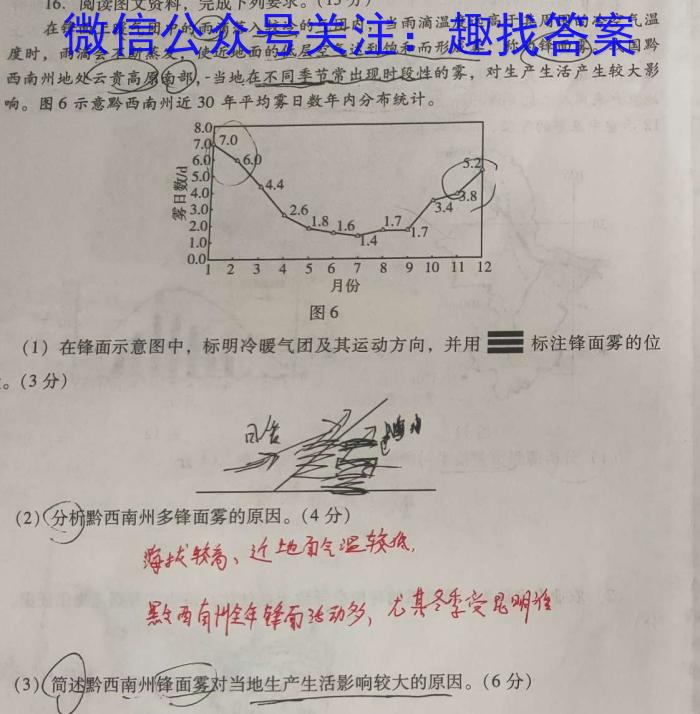 16. 阅读图文资料，完成下列要求。(15分)
微信公众号关注：趣找答案
度时，雨滴会不断蒸发，使近地面的低层空气达到饱和而形
西南州地处云贵高原南部，当地在不同季节常出现时段性的雾，对生产生活产生较大影
响。图6示意黔西南州近30年平均雾日数年内分布统计。
雾日数/d
8.0
7.0
6.0
5.0
4.0
3.0
2.0
1.0
0.0
7.0 6.0 4.4 2.6 1.8 1.6 1.4 1.7 1.7 3.4 3.8 5.2
1 2 3 4 5 6 7 8 9 10 11 12
月份
图6
(1) 在锋面示意图中，标明冷暖气团及其运动方向，并用 标注锋面雾的位
。(3分)
(2) 分析黔西南州多锋面雾的原因。(4分)
海拔较高、近地面气温较低.
黔西南州全年锋面活动多，尤其冬季受昆明准
(3) 简述黔西南州锋面雾对当地生产生活影响较大的原因。(6分)